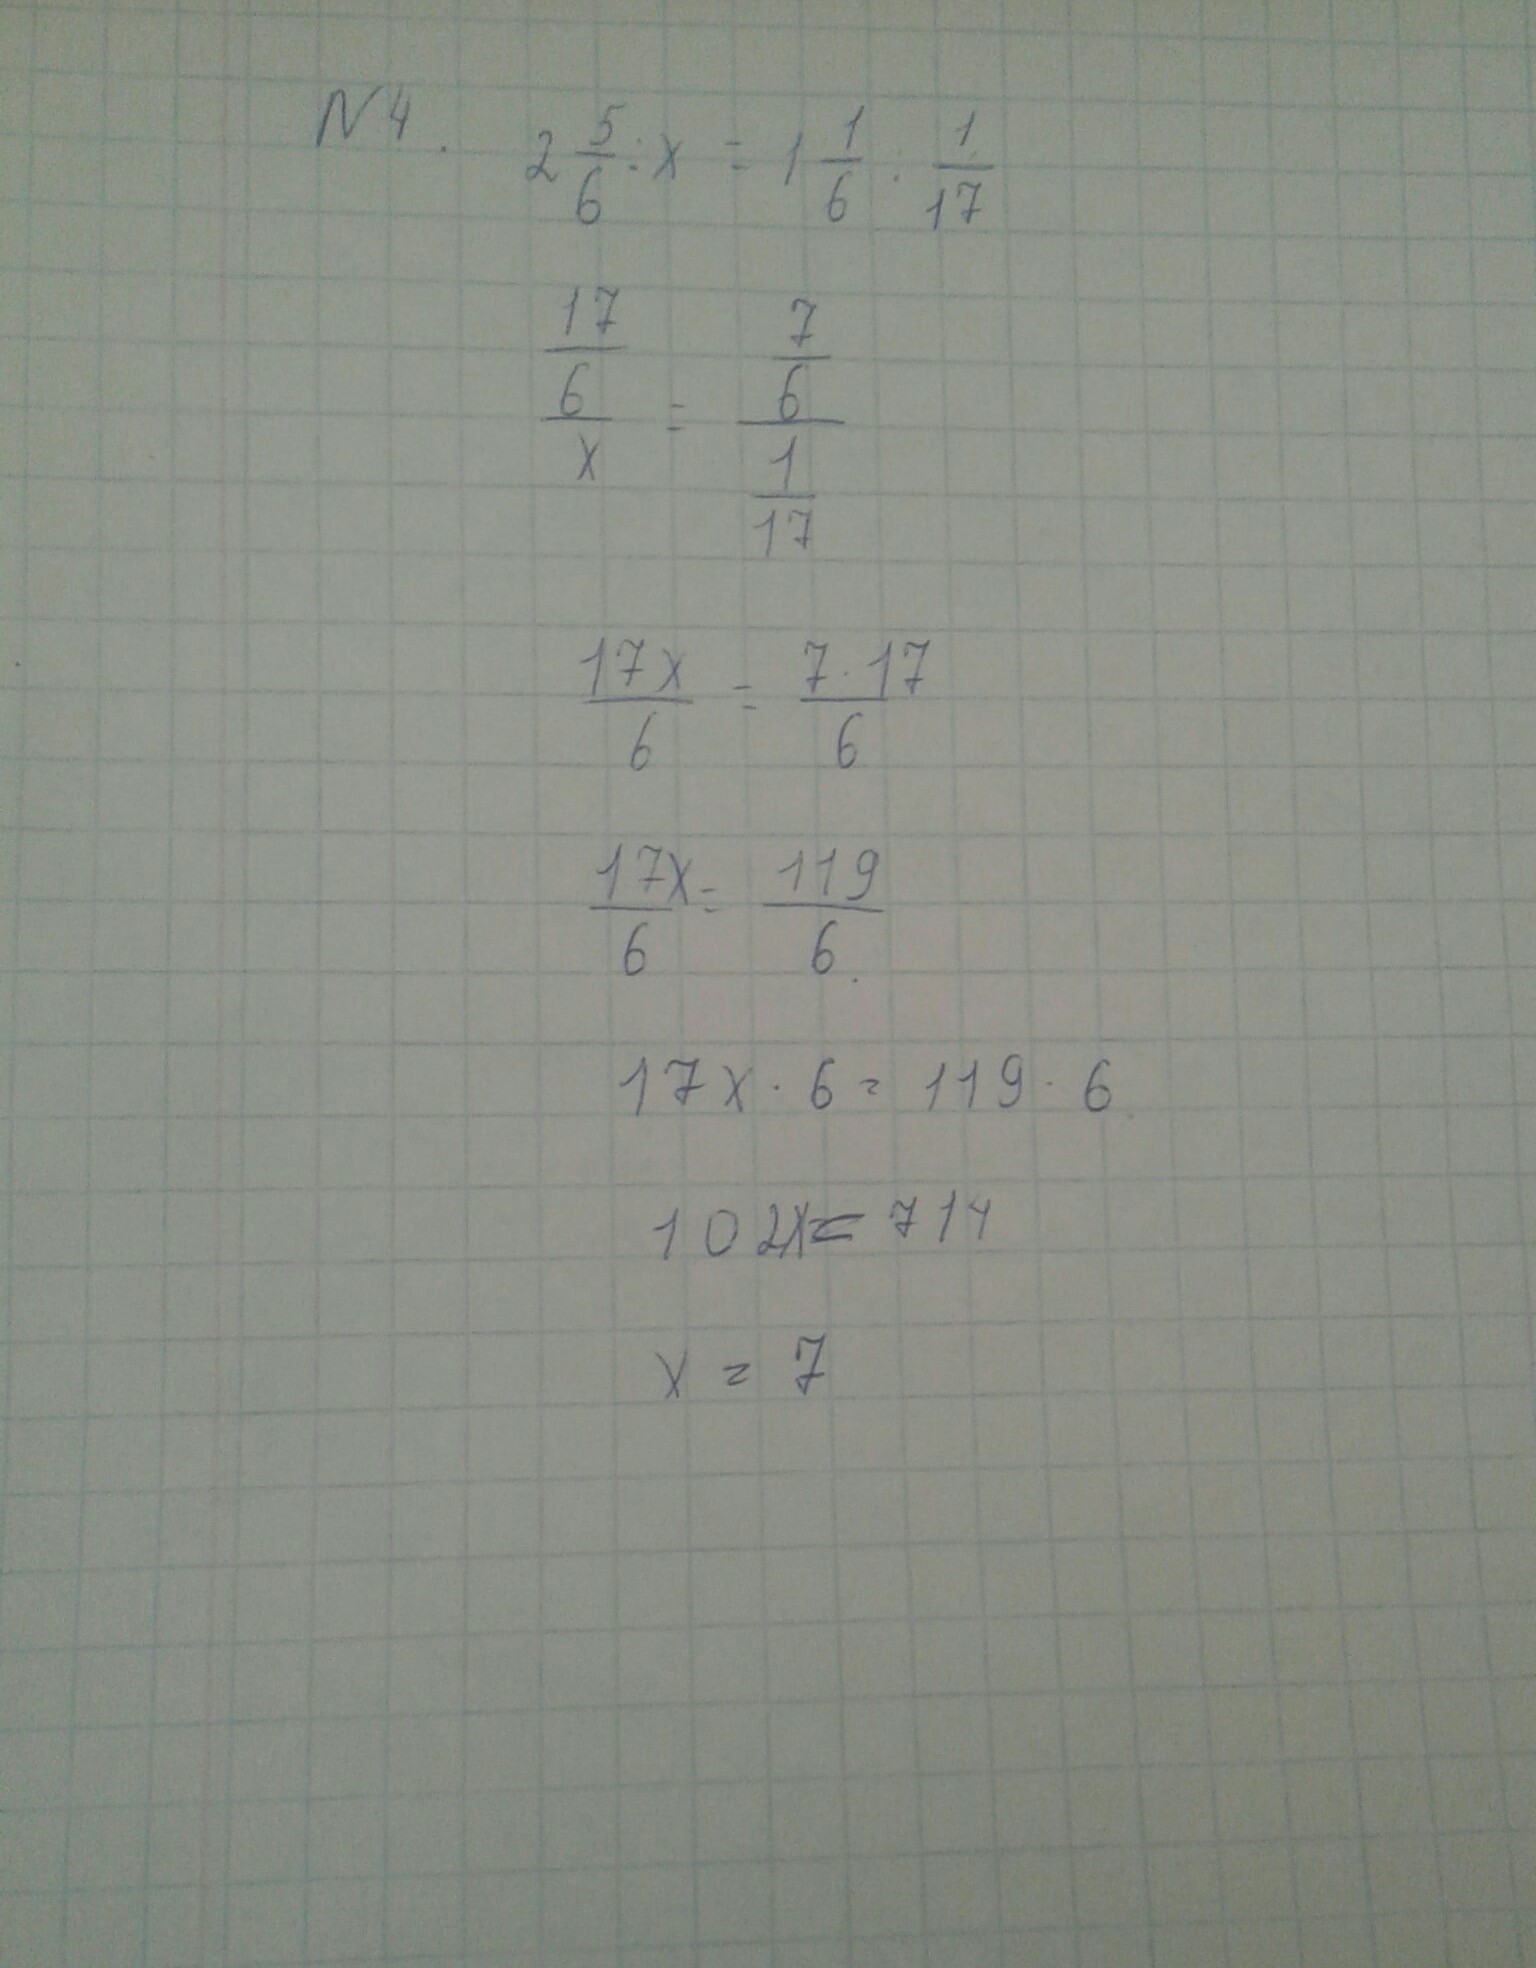 N 4. 2 5/6 : x = 1 1/6 : 1/17
17/6 / x = 7/6 / 1/17
17x/6 = 7·17/6
17x/6 = 119/6
17x · 6 = 119 · 6
102x = 714
x = 7